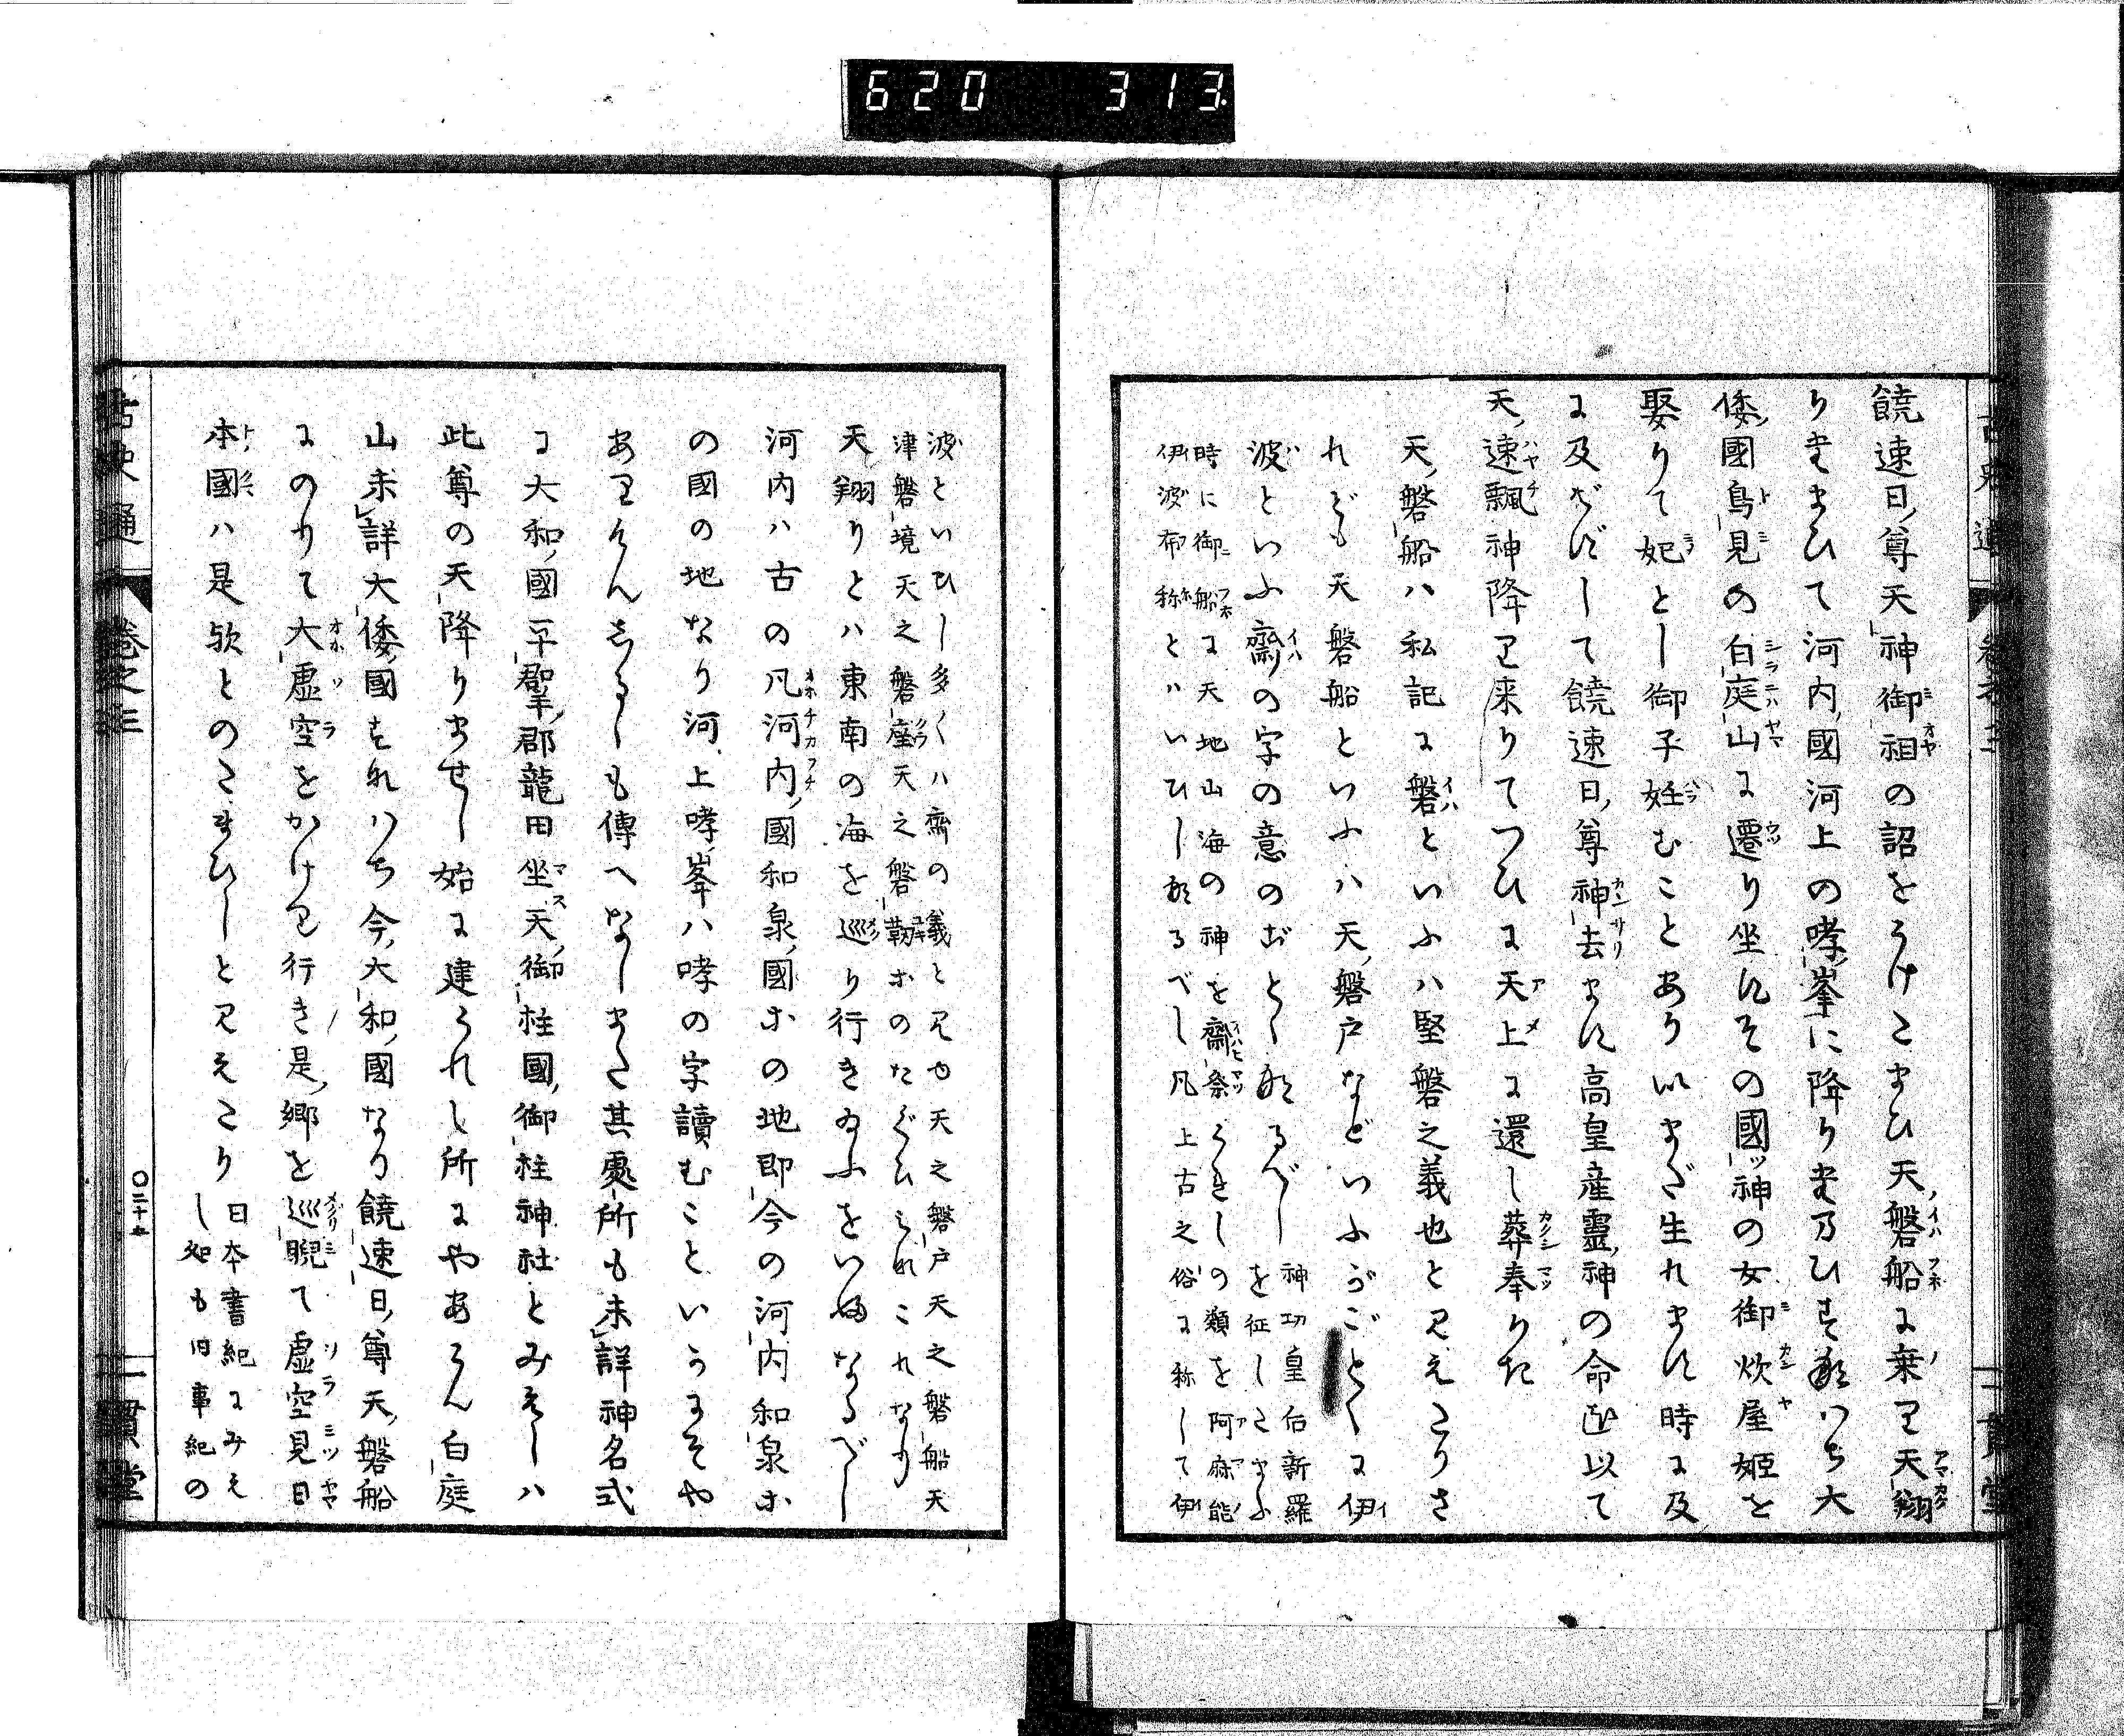 620 313.
饒速日尊天神御祖の詔をうけたまひ天磐船に乗りて天翔
りたまひて河内國河上の哮峯に降りたまひすなはち大
倭國鳥見の白庭山に遷り坐すその國ツ神の女御炊屋姫を
娶りて妃とし御子妊むことありいまだ生れます時に及
に及ばずして饒速日尊神去ます高皇産靈神の命を以て
天速飄神降り来りてつひに天上に還し葬奉りた
天磐船ハ私記に磐といふハ堅磐之義也と見えたりさ
れども天磐船といふハ天磐戸などいふがごとくに伊
波といふ齋の字の意のごとくなるべし
神功皇后新羅
を征したまふ
時に御船に天地山海の神を齋祭らましの類を阿麻能
伊波布称とハいひしなるべし凡上古之俗に称して伊
波といひし多くハ齋の義と見ゆ天之磐戸天之磐船天
津磐境天之磐座天之磐靭等のたぐひこれなり
天翔りとハ東南の海を巡り行き給ふをいふなるべし
河内ハ古の凡河内國和泉國等の地即今の河内和泉等
の國の地なり河上哮峯ハ哮の字讀むこといかにそや
ありけんしるしも傳へなしまた其處所も未詳神名式
に大和國平群郡龍田坐天御柱國御柱神社とみえしハ
此尊の天降りませし始に建られし所にやあらん白庭
山未詳大倭國すなはち今大和國なり饒速日尊天磐船
にのりて大虚空をかけり行き是郷を巡睨て虚空見日
本國ハ是歟とのたまひしと見えたり
日本書紀にみえ
し処も旧事紀の
古史通
卷之三
〇二十五
一貫堂